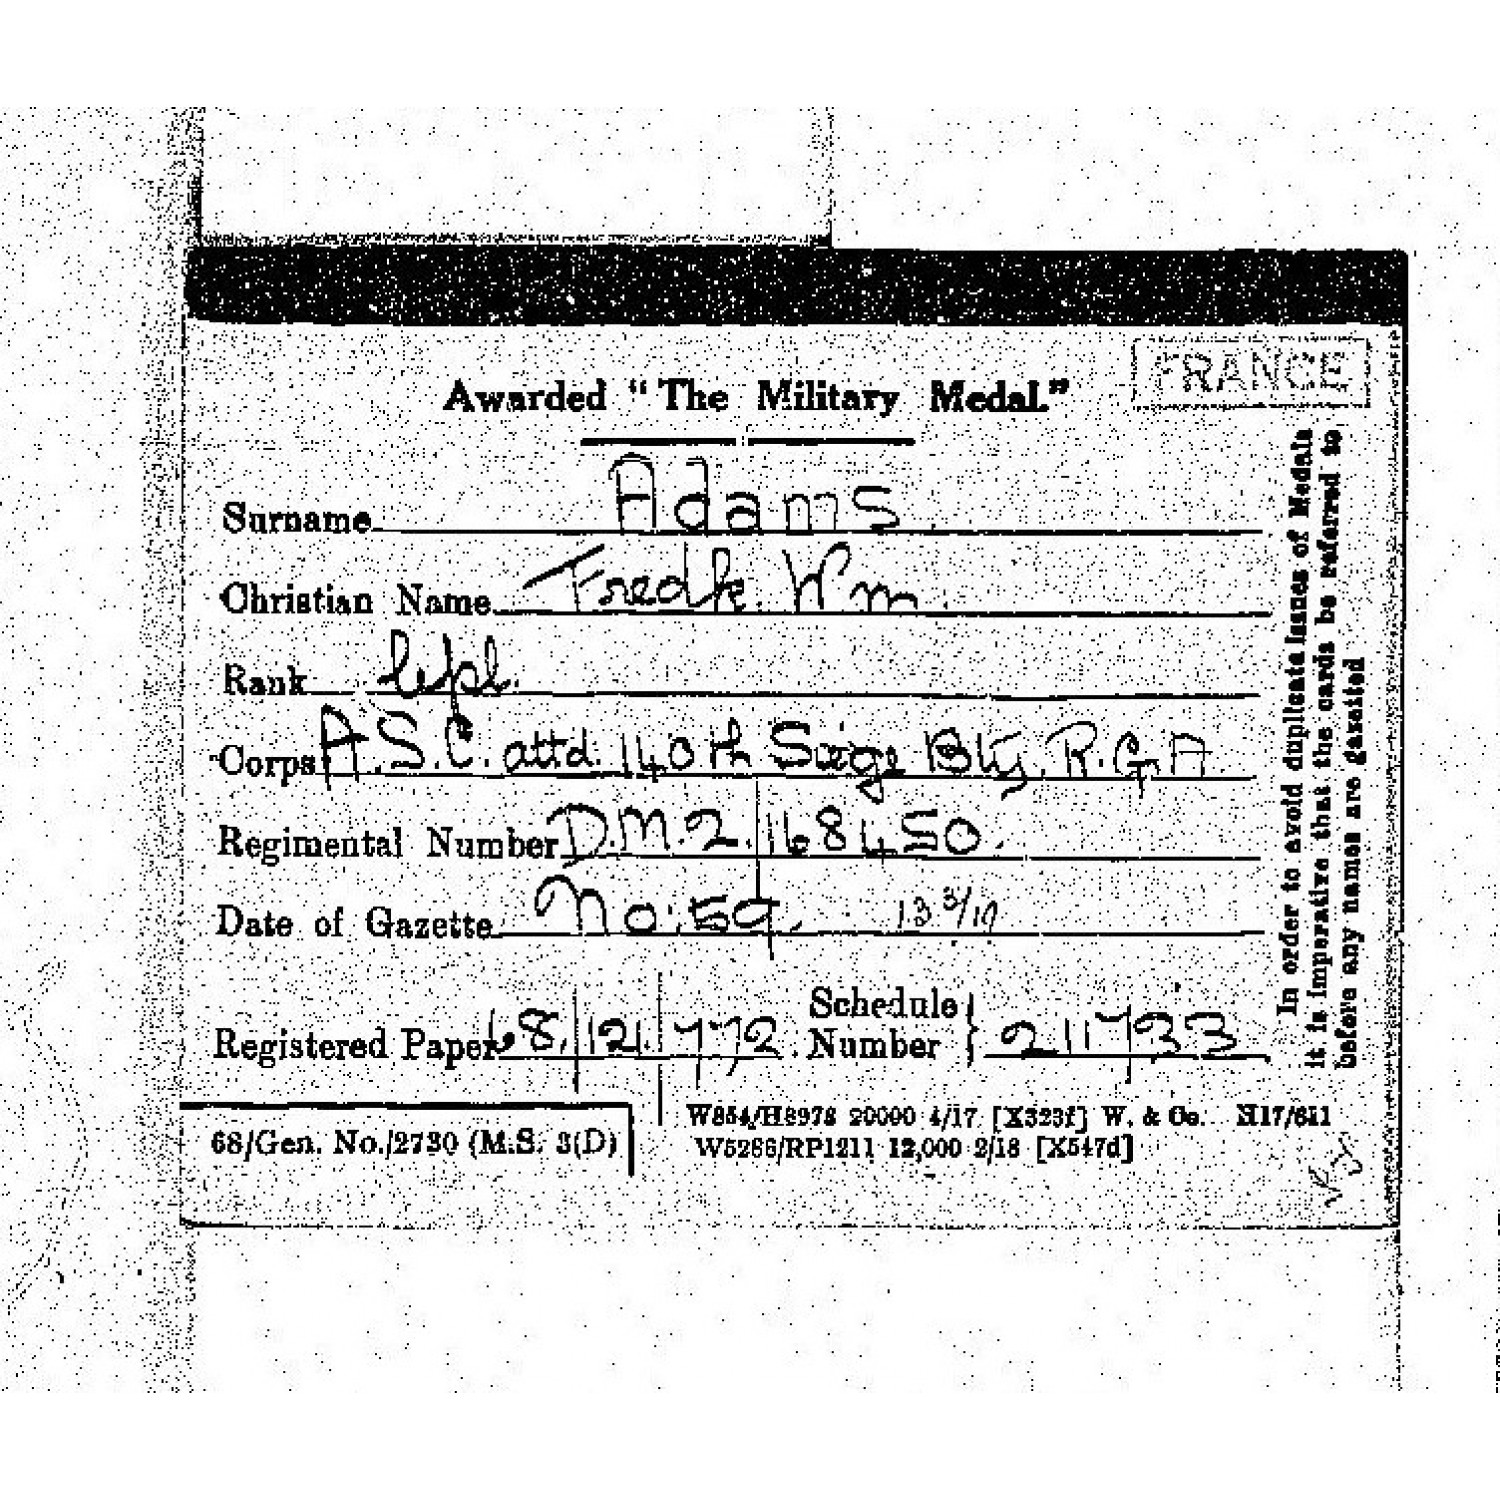 FRANCE
Awarded "The Military Medal."
Surname Adams
Christian Name Fredk. Wm
Rank Cpl.
Corps A.S.C. attd. 140th Siege Bty, R.G.A
Regimental Number D.M.2.168450.
Date of Gazette No: 59. 13 3/19
Registered Paper 68/121/772. Schedule Number } 211733
68/Gen. No./2730 (M.S. 3(D)
W854/H8976 20000 4/17 [X323f] W. & Co. H17/641
W5266/RP1211 12,000 2/18 [X547d]
In order to avoid duplicate issues of Medals
it is imperative that the cards be referred to
before any names are gazetted